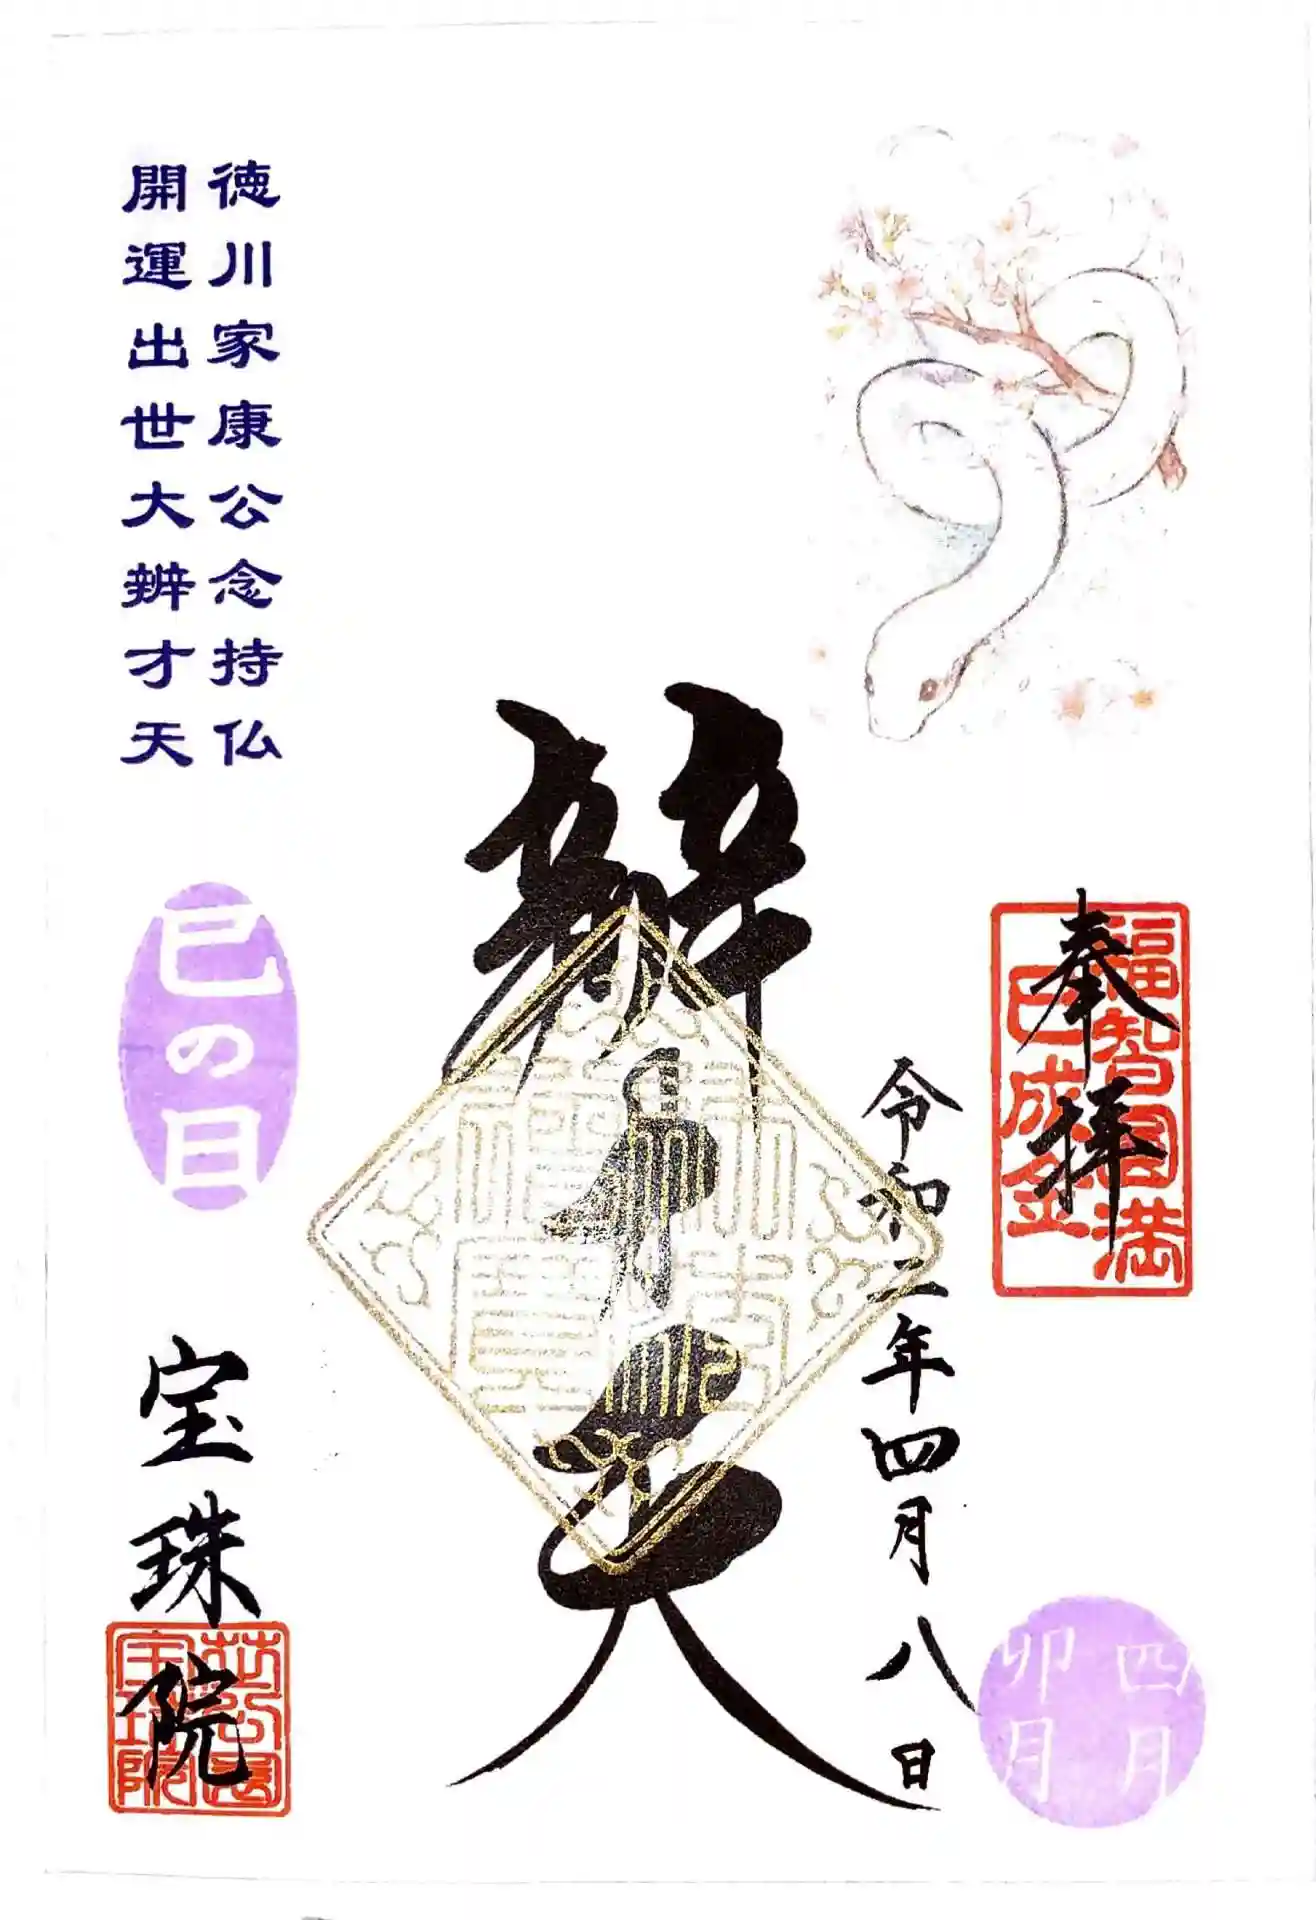 奉拝
福智圓満
巳成金
令和二年四月八日
四月
卯月
辨財天
徳川家康公念持仏
開運出世大辨才天
巳の日
宝珠院
芝公園
宝珠院